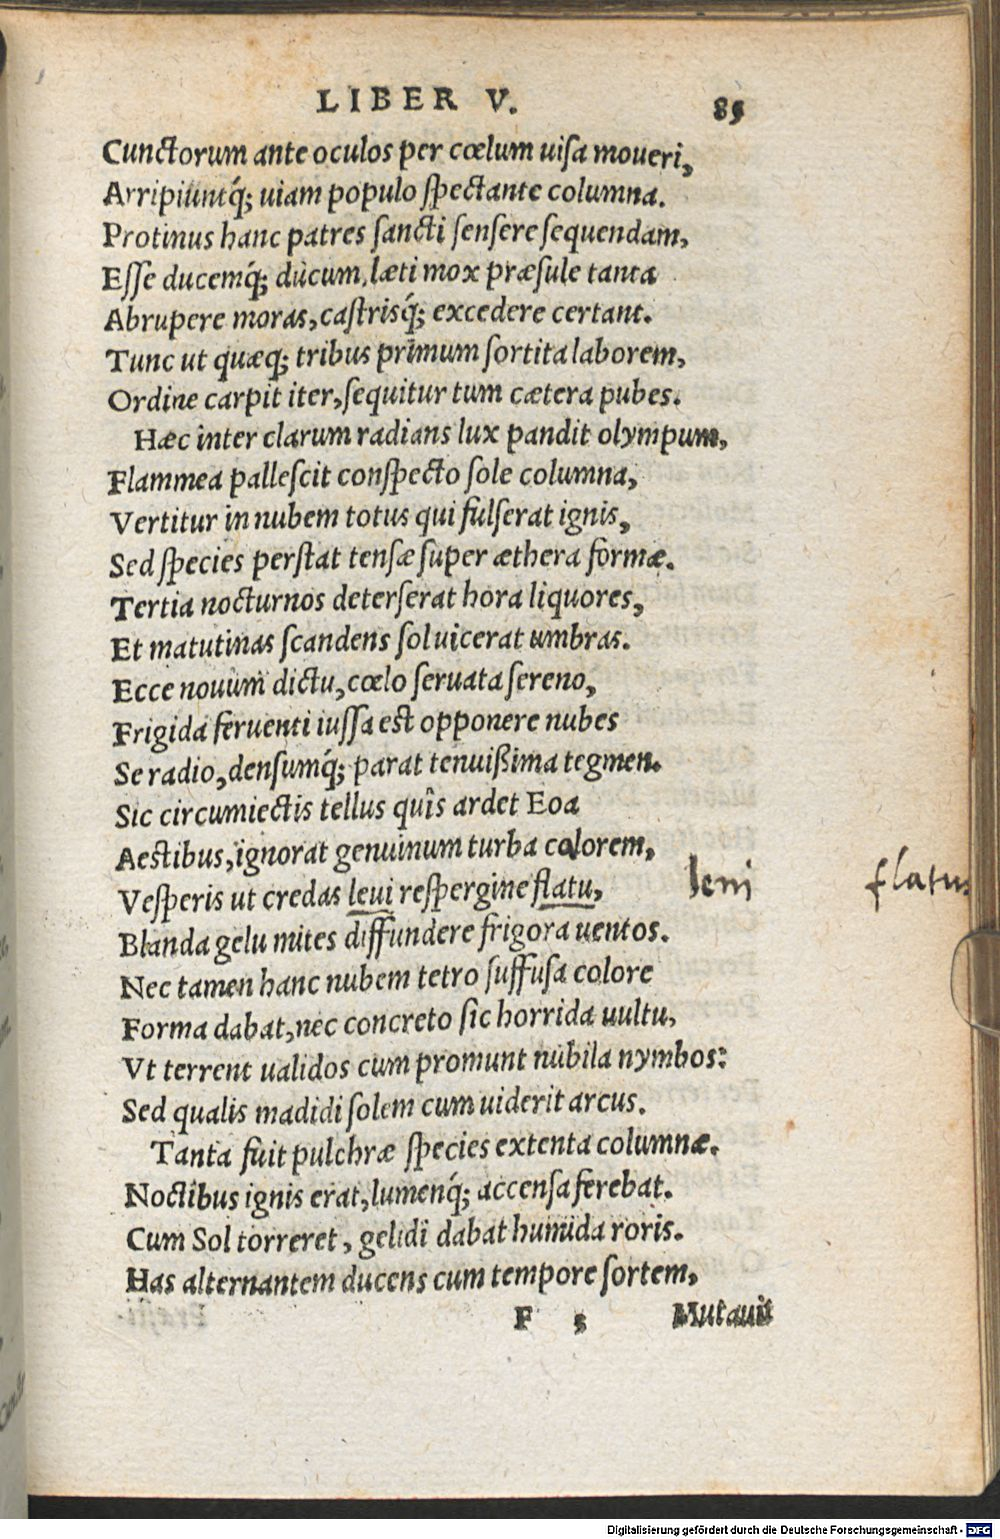 LIBER V. 85
Cunctorum ante oculos per cœlum uiſa moueri,
Arripiuntq́; uiam populo ſpectante columna.
Protinus hanc patres ſancti ſenſere ſequendam,
Eſſe ducemq́; ducum, læti mox præſule tanta
Abrupere moras, caſtrisq́; excedere certant.
Tunc ut quæq; tribus primum ſortita laborem,
Ordine carpit iter, ſequitur tum cætera pubes.
Hæc inter clarum radians lux pandit olympum,
Flammea palleſcit conſpecto ſole columna,
Vertitur in nubem totus qui fulſerat ignis,
Sed ſpecies perſtat tenſæ ſuper æthera formæ.
Tertia nocturnos deterſerat hora liquores,
Et matutinas ſcandens ſol uicerat umbras.
Ecce nouum dictu, cœlo ſeruata ſereno,
Frigida feruenti iuſſa eſt opponere nubes
Se radio, denſumq́; parat tenuißima tegmen.
Sic circumiectis tellus quîs ardet Eoa
Aeſtibus, ignorat genuinum turba colorem,
Veſperis ut credas leui reſpergine flatu, leni flatus
Blanda gelu mites diffundere frigora uentos.
Nec tamen hanc nubem tetro ſuffuſa colore
Forma dabat, nec concreto ſic horrida uultu,
Vt terrent ualidos cum promunt nubila nymbos:
Sed qualis madidi ſolem cum uiderit arcus.
Tanta fuit pulchræ ſpecies extenta columnæ.
Noctibus ignis erat, lumenq́; accenſa ferebat.
Cum Sol torreret, gelidi dabat humida roris.
Has alternantem ducens cum tempore ſortem,
F 5 Mutauit
Digitalisierung gefördert durch die Deutsche Forschungsgemeinschaft - DFG